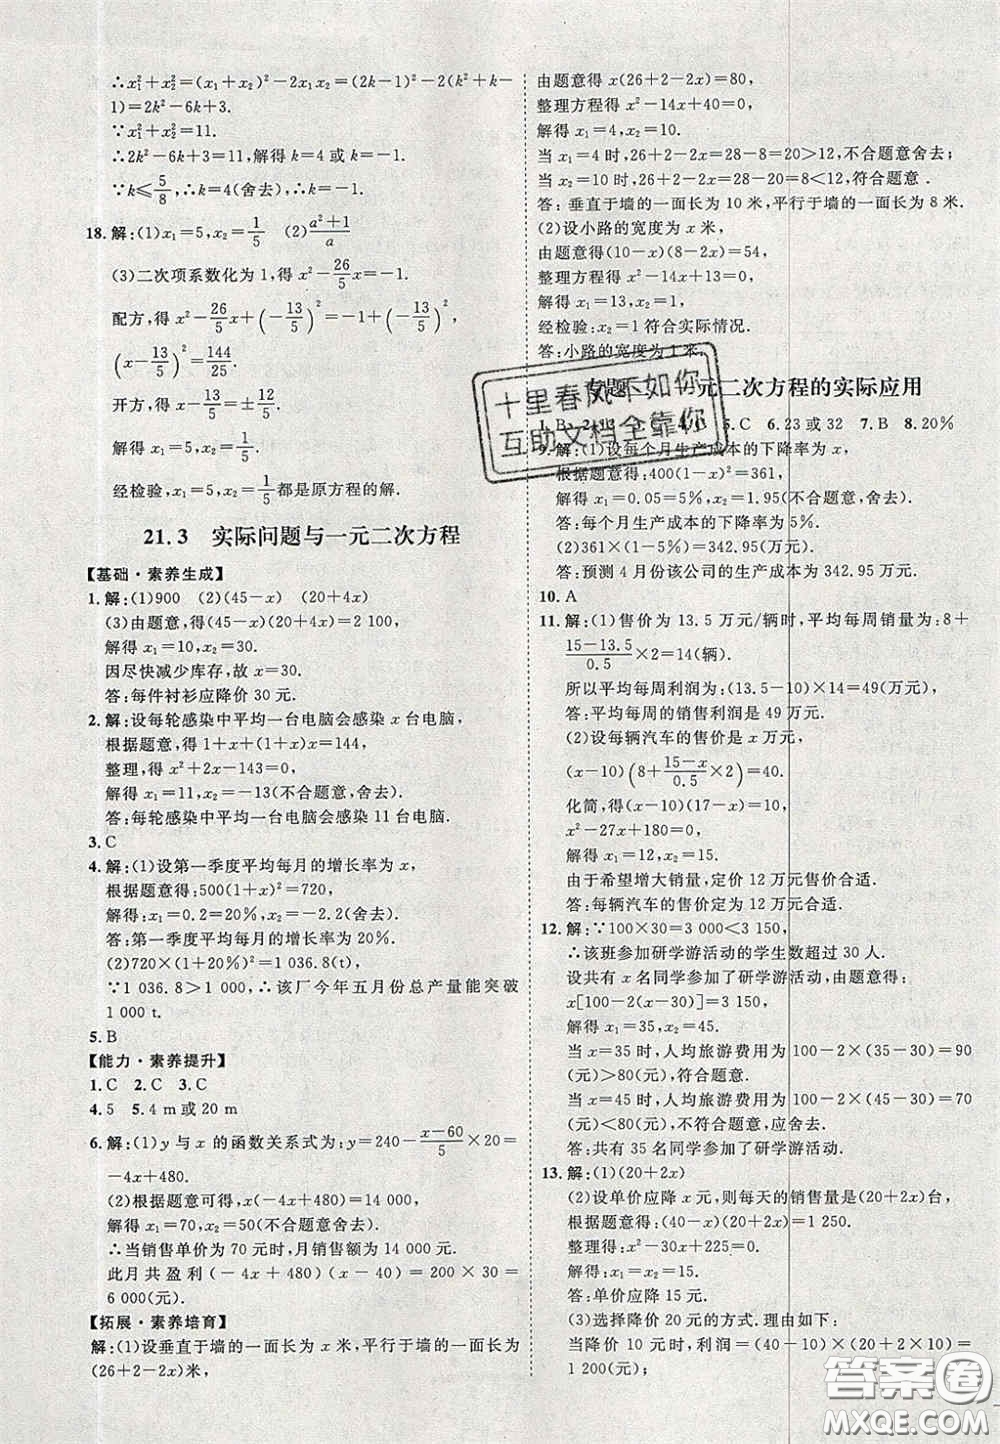 ∴x₁²+x₂²=(x₁+x₂)²-2x₁x₂=(2k-1)²-2(k²+k-
1)=2k²-6k+3.
∵x₁²+x₂²=11.
∴2k²-6k+3=11,解得 k=4 或 k=-1.
∵k≤5/8,∴k=4(舍去),∴k=-1.
18.解:(1)x₁=5,x₂=1/5 (2)(a²+1)/a
(3)二次项系数化为 1,得 x²-26/5x=-1.
配方,得 x²-26/5x+(-13/5)²=-1+(-13/5)²,
(x-13/5)²=144/25.
开方,得 x-13/5=±12/5.
解得 x₁=5,x₂=1/5.
经检验,x₁=5,x₂=1/5都是原方程的解.
21.3 实际问题与一元二次方程
【基础·素养生成】
1.解:(1)900 (2)(45-x) (20+4x)
(3)由题意,得(45-x)(20+4x)=2 100,
解得 x₁=10,x₂=30.
因尽快减少库存,故 x=30.
答:每件衬衫应降价 30 元.
2.解:设每轮感染中平均一台电脑会感染 x 台电脑,
根据题意,得 1+x+(1+x)x=144,
整理,得 x²+2x-143=0,
解得 x₁=11,x₂=-13(不合题意,舍去).
答:每轮感染中平均一台电脑会感染 11 台电脑.
3.C
4.解:(1)设第一季度平均每月的增长率为 x,
根据题意得:500(1+x)²=720,
解得:x₁=0.2=20%,x₂=-2.2(舍去).
答:第一季度平均每月的增长率为 20%.
(2)720×(1+20%)²=1 036.8(t),
∵1 036.8>1 000,∴该厂今年五月份总产量能突破
1 000 t.
5.B
【能力·素养提升】
1.C 2.C 3.C
4.5 5.4 m或 20 m
6.解:(1)y 与 x 的函数关系式为:y=240-(x-60)/5×20=
-4x+480.
(2)根据题意可得:x(-4x+480)=14 000,
解得 x₁=70,x₂=50(不合题意舍去).
∴当销售单价为 70 元时,月销售额为 14 000 元.
此月共盈利(-4x+480)(x-40)=200×30=
6 000(元).
【拓展·素养培育】
解:(1)设垂直于墙的一面长为 x 米,平行于墙的一面长为
(26+2-2x)米,
由题意得 x(26+2-2x)=80,
整理方程得 x²-14x+40=0,
解得 x₁=4,x₂=10.
当 x₁=4 时,26+2-2x=28-8=20>12,不合题意舍去;
当 x₂=10 时,26+2-2x=28-20=8<12,符合题意.
答:垂直于墙的一面长为 10 米,平行于墙的一面长为 8 米.
(2)设小路的宽度为 x 米,
由题意得(10-x)(8-2x)=54,
整理方程得 x²-14x+13=0,
解得 x₁=13,x₂=1,
经检验:x₂=1 符合实际情况.
答:小路的宽度为 1 米.
专题 元二次方程的实际应用
1.B 3.C 5.C 6.23 或 32 7.B 8.20%
9.解:(1)设每个月生产成本的下降率为 x,
根据题意得:400(1-x)²=361,
解得:x₁=0.05=5%,x₂=1.95(不合题意,舍去).
答:每个月生产成本的下降率为 5%.
(2)361×(1-5%)=342.95(万元).
答:预测 4 月份该公司的生产成本为 342.95 万元.
10.A
11.解:(1)售价为 13.5 万元/辆时,平均每周销量为:8+
(15-13.5)/0.5×2=14(辆).
所以平均每周利润为:(13.5-10)×14=49(万元),
答:平均每周的销售利润是 49 万元.
(2)设每辆汽车的售价是 x 万元,
(x-10)(8+(15-x)/0.5×2)=40.
化简,得(x-10)(17-x)=10,
x²-27x+180=0,
解得 x₁=12,x₂=15.
由于希望增大销量,定价 12 万元售价合适.
答:每辆汽车的售价定为 12 万元合适.
12.解:∵100×30=3 000<3 150,
∴该班参加研学游活动的学生数超过 30 人.
设共有 x 名同学参加了研学游活动,由题意得:
x[100-2(x-30)]=3 150,
解得 x₁=35,x₂=45.
当 x=35 时,人均旅游费用为 100-2×(35-30)=90
(元)>80(元),符合题意.
当 x=45 时,人均旅游费用为 100-2×(45-30)=70
(元)<80(元),不符合题意,应舍去.
答:共有 35 名同学参加了研学游活动.
13.解:(1)(20+2x)
(2)设单价应降 x 元,则每天的销售量是(20+2x)台,
根据题意得:(40-x)(20+2x)=1 250.
整理得:x²-30x+225=0.
解得:x₁=x₂=15.
答:单价应降 15 元.
(3)选择降价 20 元的方案.理由如下:
当降价 10 元时,利润=(40-10)×(20+2×10)=
1 200(元);
十里春风不如你
互助文档全靠你
答案圈
MXQE.COM